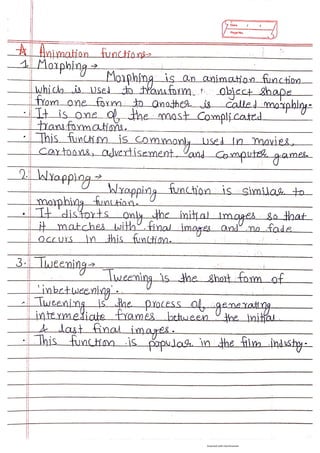 Date / /
Page No.
☆ Animation functions→
1. Morphing →
Morphing is an animation function
which is used to transform object shape
from one form to another is called morphing.
• It is one of the most complicated
transformations.
• This function is commonly used in movies,
cartoons, advertisement, and computer games.
2. Wrapping →
Wrapping function is similar to
morphing function.
• It distorts only the initial images so that
it matches with final images and no fade
occurs in this function.
3. Tweening →
Tweening is the short form of
'inbetweening'.
• Tweening is the process of generating
intermediate frames between the initial
& last final images.
• This function is popular in the film industry.
Scanned with CamScanner